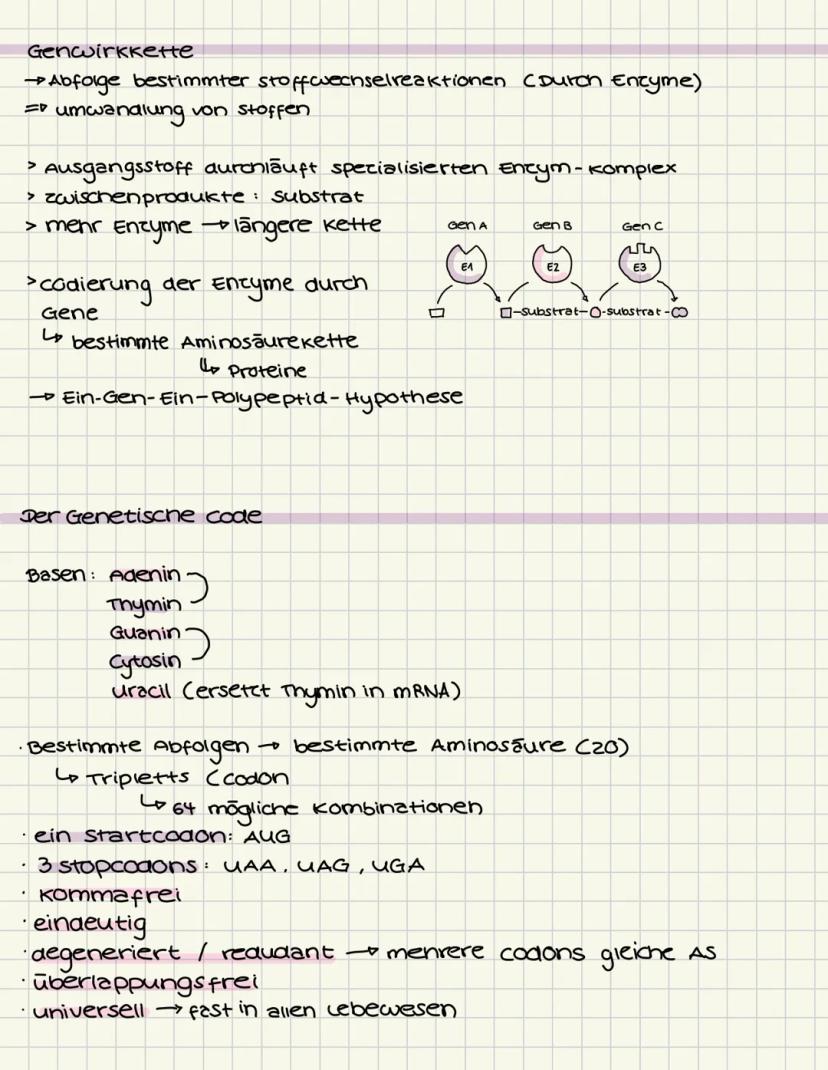 Genwirkkette
→ Abfolge bestimmter stoffwechselreaktionen (Durch Enzyme)
⇒ umwandlung von stoffen
> Ausgangsstoff durchläuft spezialisierten Enzym-Komplex
> zwischenprodukte : Substrat
> mehr Enzyme → längere Kette
Gen A Gen B Gen C
E1 E2 E3
-substrat- -substrat-
> codierung der Enzyme durch
Gene
↳ bestimmte Aminosäurekette
↳ Proteine
→ Ein-Gen-Ein-Polypeptid-Hypothese
Der Genetische Code
Basen: Adenin
Thymin
Guanin
Cytosin
Uracil (ersetzt Thymin in mRNA)
· Bestimmte Abfolgen → bestimmte Aminosäure (20)
↳ Tripletts (codon
↳ 64 mögliche Kombinationen
· ein Startcodon: AUG
· 3 stopcodons: UAA, UAG, UGA
· kommafrei
· eindeutig
· degeneriert / redudant → mehrere codons gleiche AS
· überlappungsfrei
· universell → fast in allen Lebewesen